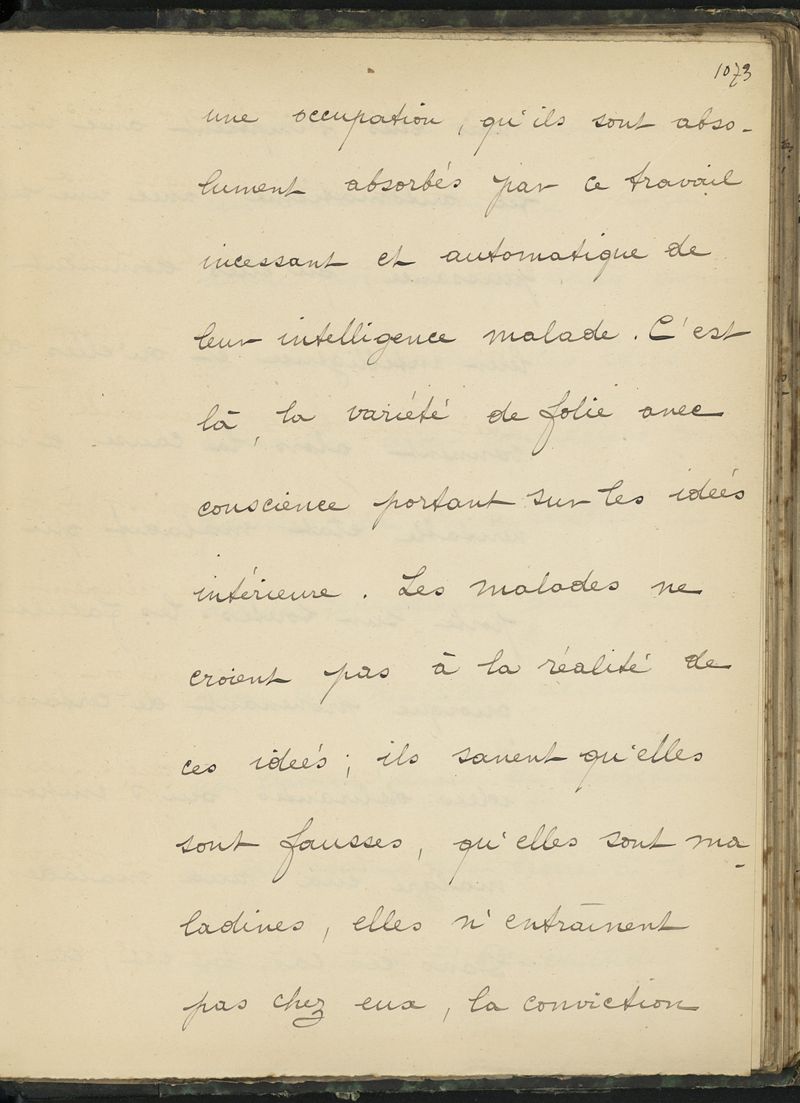 1073
une occupation, qu'ils sont abso-
lument absorbés par ce travail
incessant et automatique de
leur intelligence malade. C'est
là, la variété de folie avec
conscience portant sur les idées
intérieure. Les malades ne
croient pas à la réalité de
ces idées; ils savent qu'elles
sont fausses, qu'elles sont ma-
ladives, elles n'entraînent
pas chez eux, la conviction